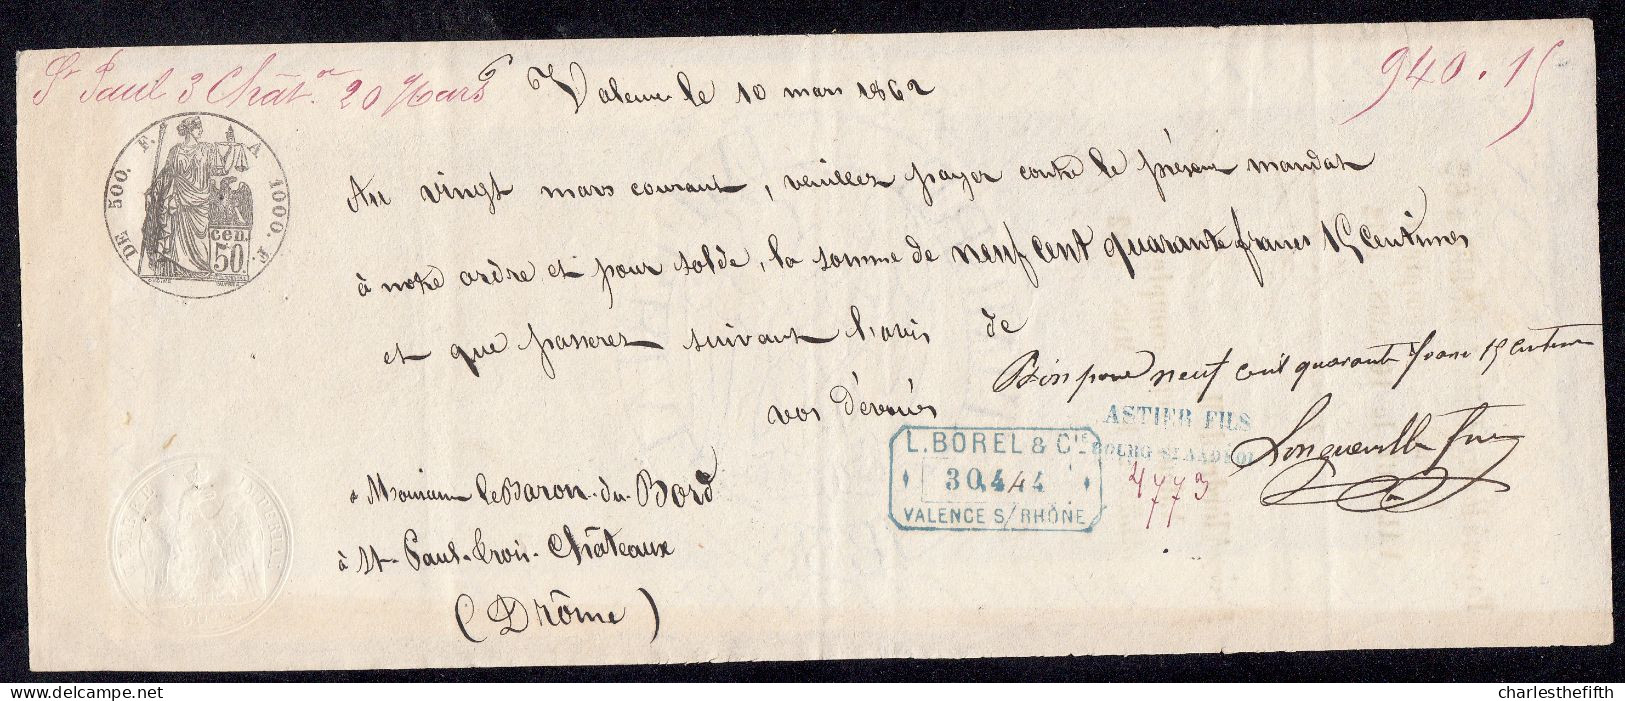 St Paul 3 Chât.x 20 Mars
940.15
Valence le 10 mars 1862
DE 500. F. A 1000. F.
cen.
50.
Au vingt mars courant, veuillez payer contre le présent mandat
à notre ordre et pour solde, la somme de neuf cent quarante francs 15 centimes
et que passerez suivant l'avis de
vos dévoués
Bon pour neuf cent quarante francs 15 centimes
ASTIER FILS
BOURG-ST ANDÉOL
Longueville
L. BOREL & Cie
30,444
VALENCE S/ RHÔNE
4773
a Monsieur le Baron du Bord
à St Paul-trois-Châteaux
(Drôme)
charlesthefifth